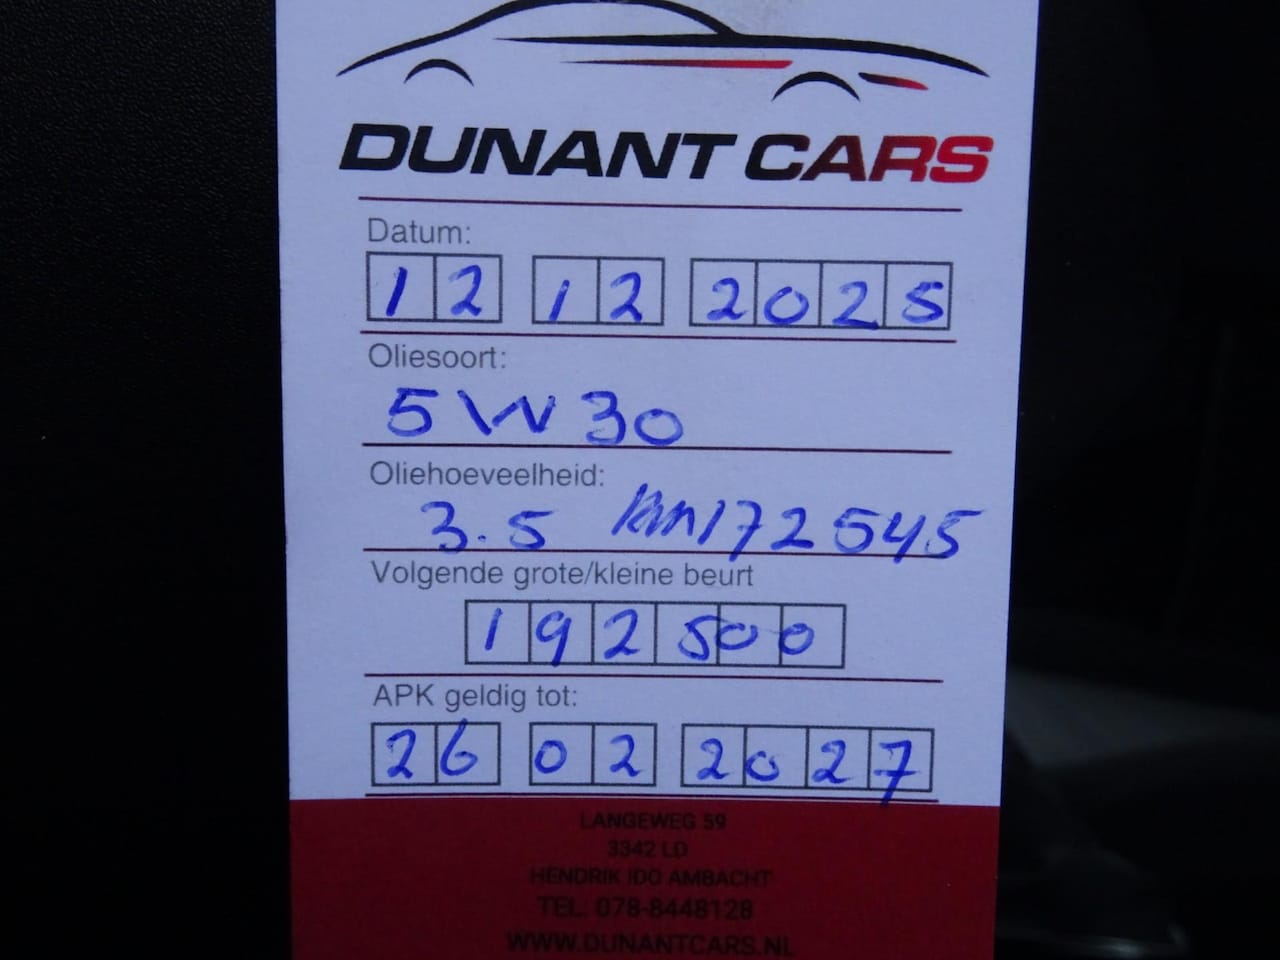 DUNANT CARS
Datum:
12 12 2025
Oliesoort:
5W30
Oliehoeveelheid:
3.5 km172545
Volgende grote/kleine beurt
192500
APK geldig tot:
26 02 2027
LANGEWEG 59
3342 LD
HENDRIK IDO AMBACHT
TEL. 078-8448128
WWW.DUNANTCARS.NL